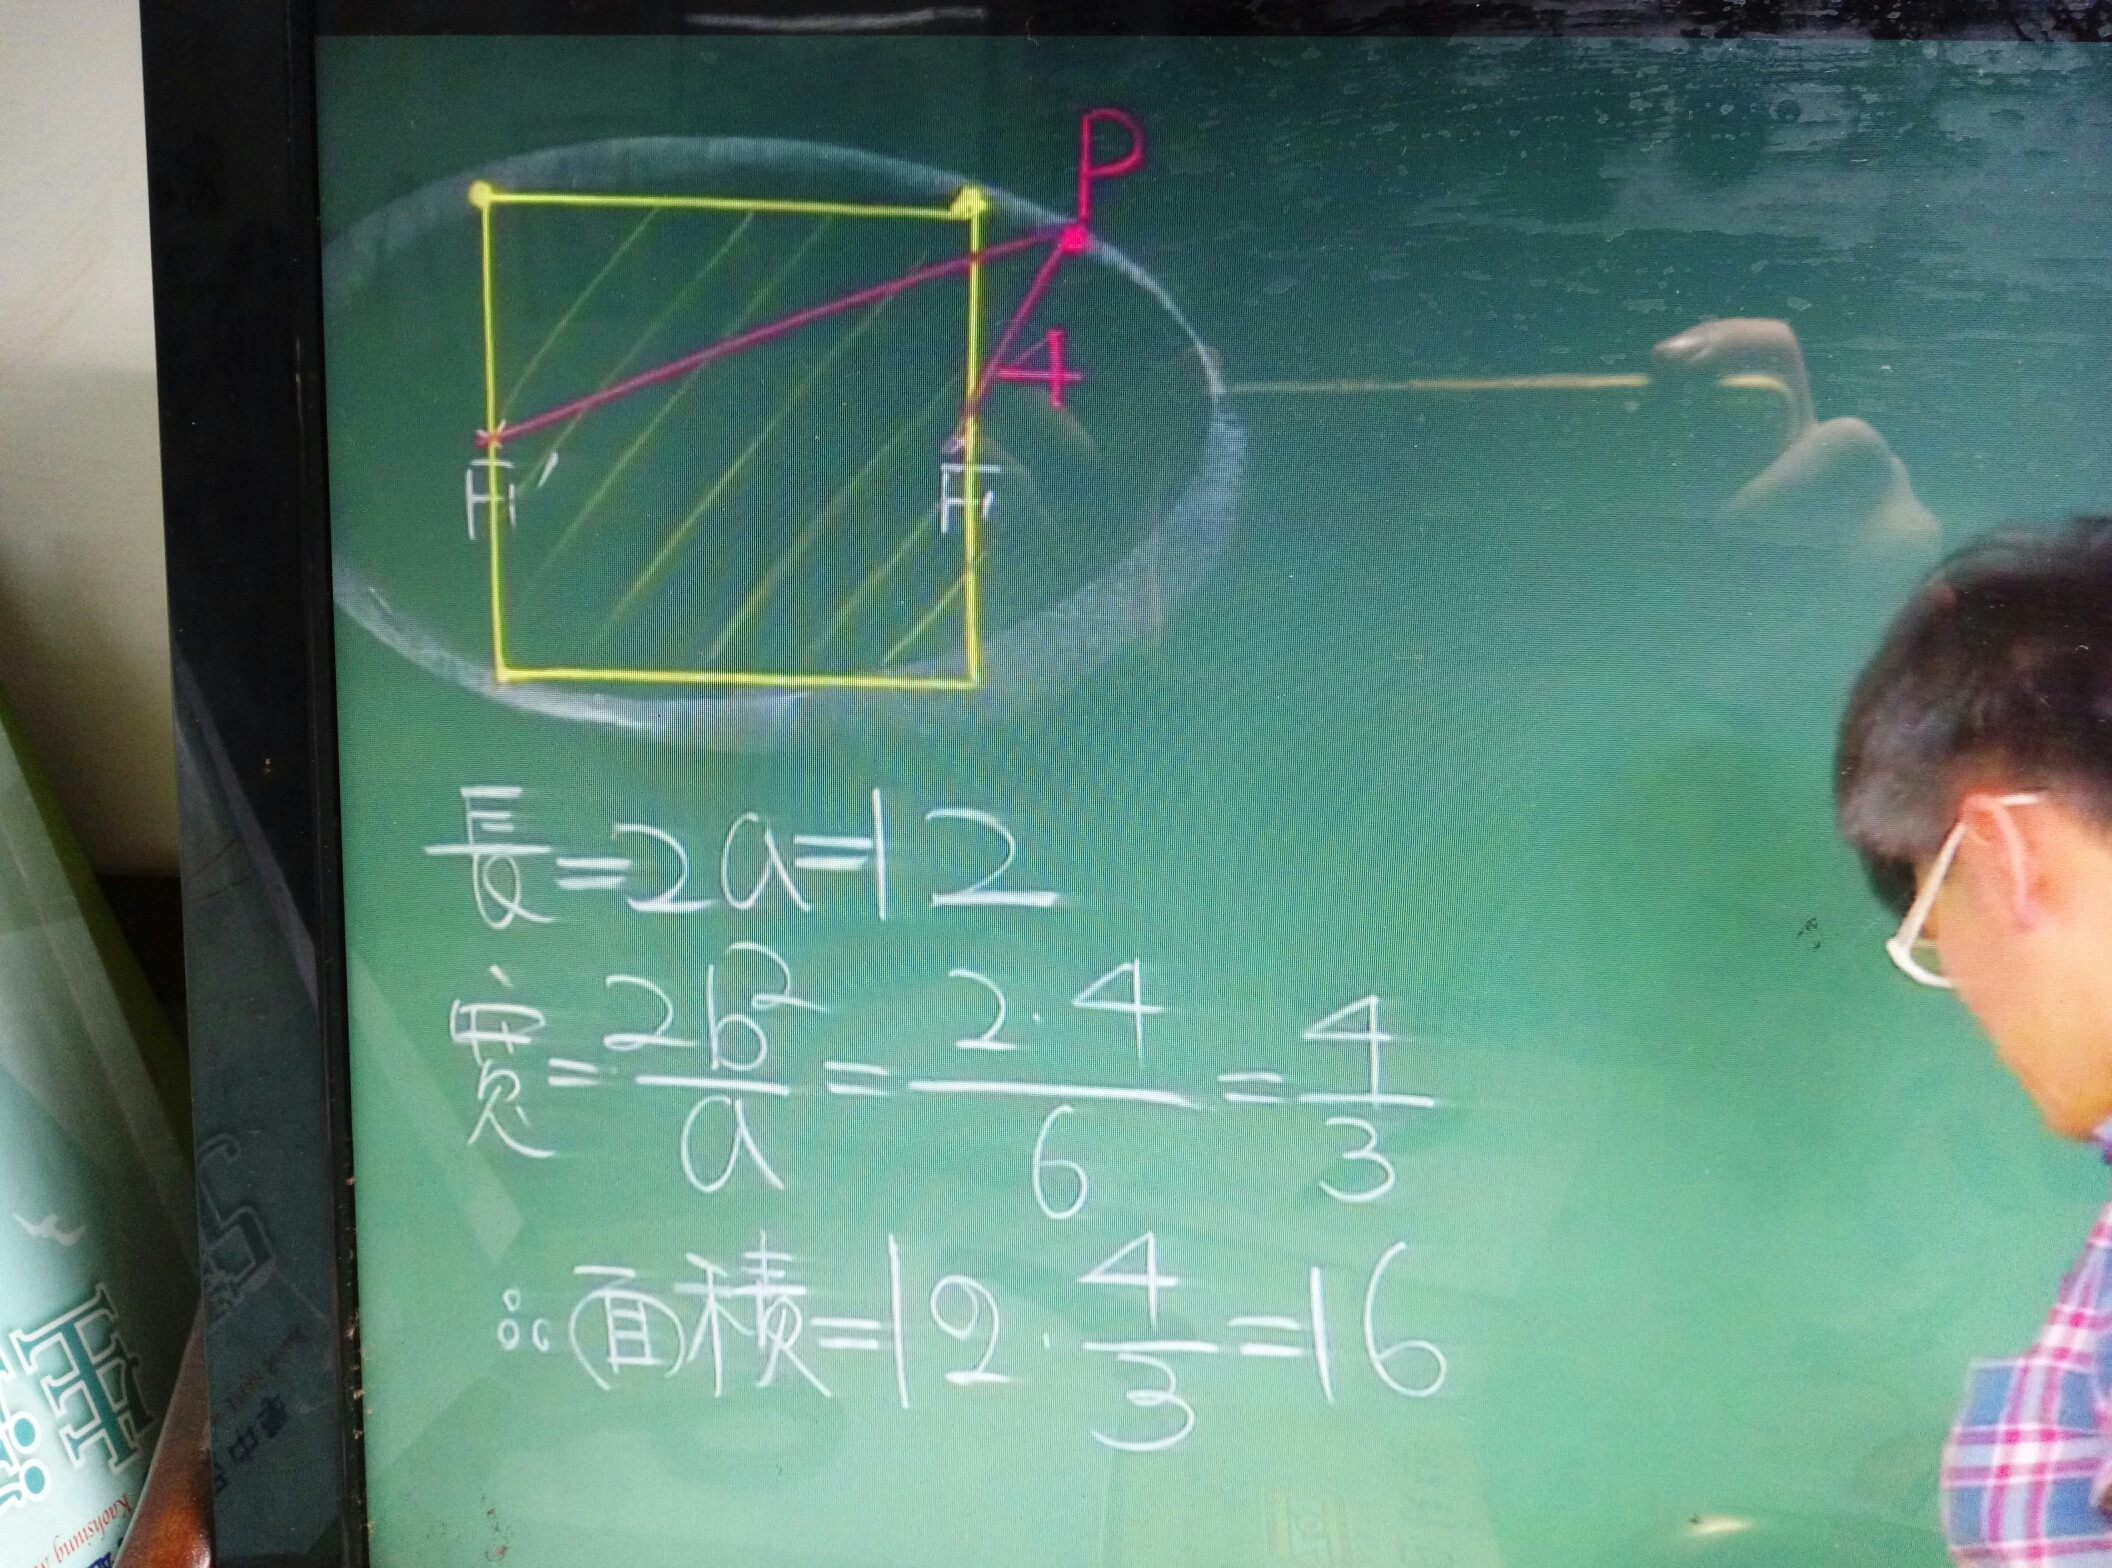 P
4
F₁' F₁
長=2a=12
寬=2b²/a=2·4/6=4/3
∴面積=12·4/3=16